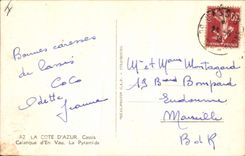 Bonnes caresses
de Cassis
CoCo
Odette
Jeanne
A2 LA COTE D'AZUR. Cassis
Calanque d'En Vau. La Pyramide
M. et Mme Montagard
19 Bard Bompard
Endoume
Marseille
B d R